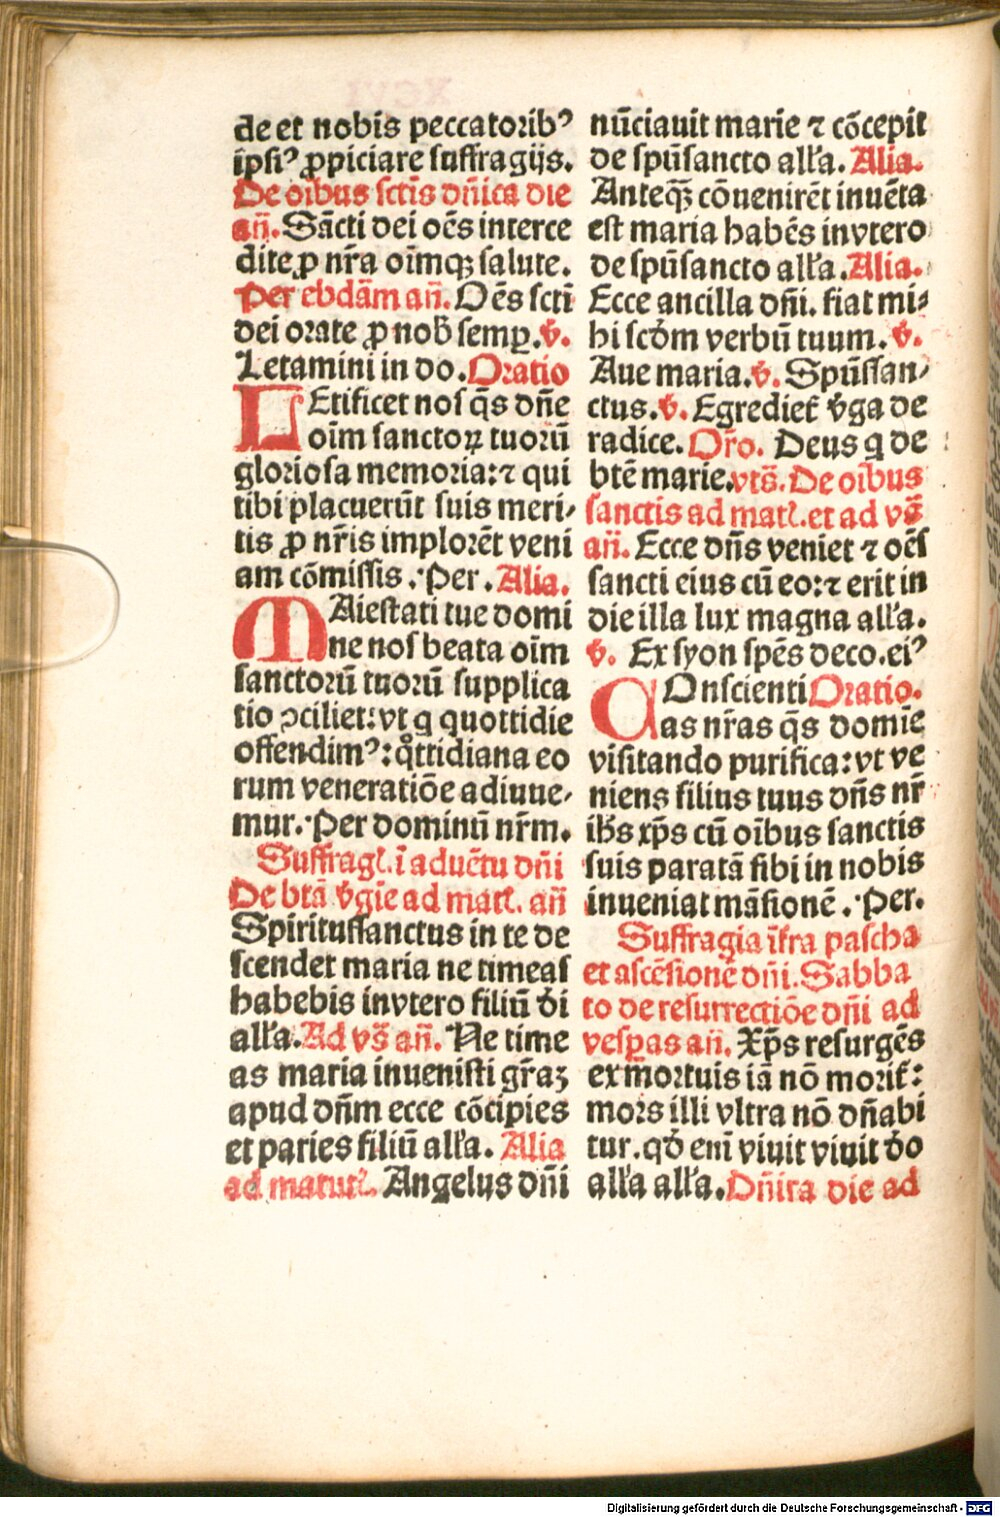 de et nobis peccatorib⁹
ip̄si⁹ ꝓpiciare suffragijs.
De oībus sctīs dn̄ica die
an̄. Sācti dei oēs interce
dite ꝓ nr̄a oīmqꝫ salute.
Per ebdām an̄. Oēs sctī
dei orate ꝓ nob̄ semꝑ. v̄.
Letamini in do. Oratio
LEtificet nos q̄s dn̄e
oīm sanctoꝝ tuorū
gloriosa memoria: ⁊ qui
tibi placuerūt suis meri⸗
tis ꝓ nr̄is implorēt veni
am cōmissis. Per. Alia.
MAiestati tue domi
ne nos beata oīm
sanctorū tuorū supplica
tio ↄciliet: vt q quottidie
offendim⁹: qͦttidiana eo
rum veneratiōe adiuue⸗
mur. Per dominū nr̄m.
Suffragꝉ. ī aduētu dn̄i
De btā v̄gīe ad matꝉ. an̄
Spiritussanctus in te de
scendet maria ne timeas
habebis invtero filiū di
all'a. Ad vs̄ an̄. Ne time
as maria inuenisti gr̄aꝫ
apud dn̄m ecce cōcipies
et paries filiū all'a. Alia
ad matutꝉ. Angelus dn̄i
nūciauit marie ⁊ cōcepit
de spūsancto all'a. Alia.
Anteqꝫ cōuenirēt inuēta
est maria habēs invtero
de spūsancto all'a. Alia.
Ecce ancilla dn̄i. fiat mi⸗
hi scdm verbū tuum. v̄.
Aue maria. v̄. Spūssan⸗
ctus. v̄. Egrediet̄ v̄ga de
radice. Or̄o. Deus q de
btē marie. vts̄. De oībus
sanctis ad matꝉ. et ad vs̄
an̄. Ecce dn̄s veniet ⁊ oēs
sancti eius cū eo: ⁊ erit in
die illa lux magna all'a.
v̄. Ex syon spēs deco. ei⁹
COnscienti Oratio.
as nr̄as q̄s domīe
visitando purifica: vt ve
niens filius tuus dn̄s nr̄
ih̄s xp̄s cū oībus sanctis
suis paratā sibi in nobis
inueniat māsionē. Per.
Suffragia īfra pascha
et ascēsionē dn̄i. Sabba
to de resurrectiōe dn̄i ad
vesꝑas an̄. Xp̄s resurgēs
ex mortuis iā nō morit̄:
mors illi vltra nō dn̄abi
tur. qd enī viuit viuit do
all'a all'a. Dn̄ica die ad
Digitalisierung gefördert durch die Deutsche Forschungsgemeinschaft - DFG